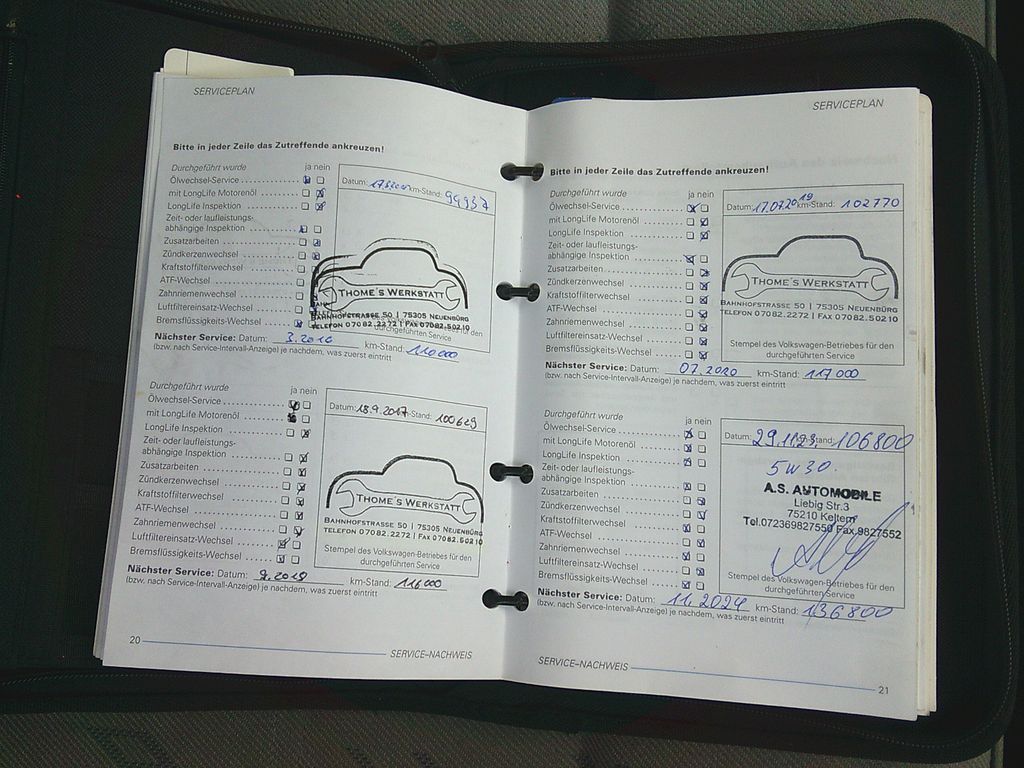 SERVICEPLAN
Bitte in jeder Zeile das Zutreffende ankreuzen!
Durchgeführt wurde ja nein
Ölwechsel-Service
mit LongLife Motorenöl
LongLife Inspektion
Zeit- oder laufleistungs-
abhängige Inspektion
Zusatzarbeiten
Zündkerzenwechsel
Kraftstoffilterwechsel
ATF-Wechsel
Zahnriemenwechsel
Luftfiltereinsatz-Wechsel
Bremsflüssigkeits-Wechsel
Datum: km-Stand: 94937
THOME'S WERKSTATT
BAHNHOFSTRASSE 50 | 75305 NEUENBÜRG
TELEFON 07082.2272 | FAX 07082.50210
durchgeführten Service
Nächster Service: Datum: km-Stand: 110000
(bzw. nach Service-Intervall-Anzeige) je nachdem, was zuerst eintritt
Durchgeführt wurde ja nein
Ölwechsel-Service
mit LongLife Motorenöl
LongLife Inspektion
Zeit- oder laufleistungs-
abhängige Inspektion
Zusatzarbeiten
Zündkerzenwechsel
Kraftstoffilterwechsel
ATF-Wechsel
Zahnriemenwechsel
Luftfiltereinsatz-Wechsel
Bremsflüssigkeits-Wechsel
Datum: 18.9.2017 -Stand: 100629
THOME'S WERKSTATT
BAHNHOFSTRASSE 50 | 75305 NEUENBÜRG
TELEFON 07082.2272 | FAX 07082.50210
Stempel des Volkswagen-Betriebes für den
durchgeführten Service
Nächster Service: Datum: 9.2018 km-Stand: 116000
(bzw. nach Service-Intervall-Anzeige) je nachdem, was zuerst eintritt
20
SERVICE–NACHWEIS
SERVICEPLAN
Bitte in jeder Zeile das Zutreffende ankreuzen!
Durchgeführt wurde ja nein
Ölwechsel-Service
mit LongLife Motorenöl
LongLife Inspektion
Zeit- oder laufleistungs-
abhängige Inspektion
Zusatzarbeiten
Zündkerzenwechsel
Kraftstoffilterwechsel
ATF-Wechsel
Zahnriemenwechsel
Luftfiltereinsatz-Wechsel
Bremsflüssigkeits-Wechsel
Datum: 17.07.2019 km-Stand: 102770
THOME'S WERKSTATT
BAHNHOFSTRASSE 50 | 75305 NEUENBÜRG
TELEFON 07082.2272 | FAX 07082.50210
Stempel des Volkswagen-Betriebes für den
durchgeführten Service
Nächster Service: Datum: 07.2020 km-Stand: 117000
(bzw. nach Service-Intervall-Anzeige) je nachdem, was zuerst eintritt
Durchgeführt wurde ja nein
Ölwechsel-Service
mit LongLife Motorenöl
LongLife Inspektion
Zeit- oder laufleistungs-
abhängige Inspektion
Zusatzarbeiten
Zündkerzenwechsel
Kraftstoffilterwechsel
ATF-Wechsel
Zahnriemenwechsel
Luftfiltereinsatz-Wechsel
Bremsflüssigkeits-Wechsel
Datum: 29.11.23 -Stand: 106800
5W30.
A.S. AUTOMOBILE
Liebig Str.3
75210 Keltern
Tel.072369827550 Fax.9827552
Stempel des Volkswagen-Betriebes für den
durchgeführten Service
Nächster Service: Datum: 11.2024 km-Stand: 136800
(bzw. nach Service-Intervall-Anzeige) je nachdem, was zuerst eintritt
SERVICE–NACHWEIS
21